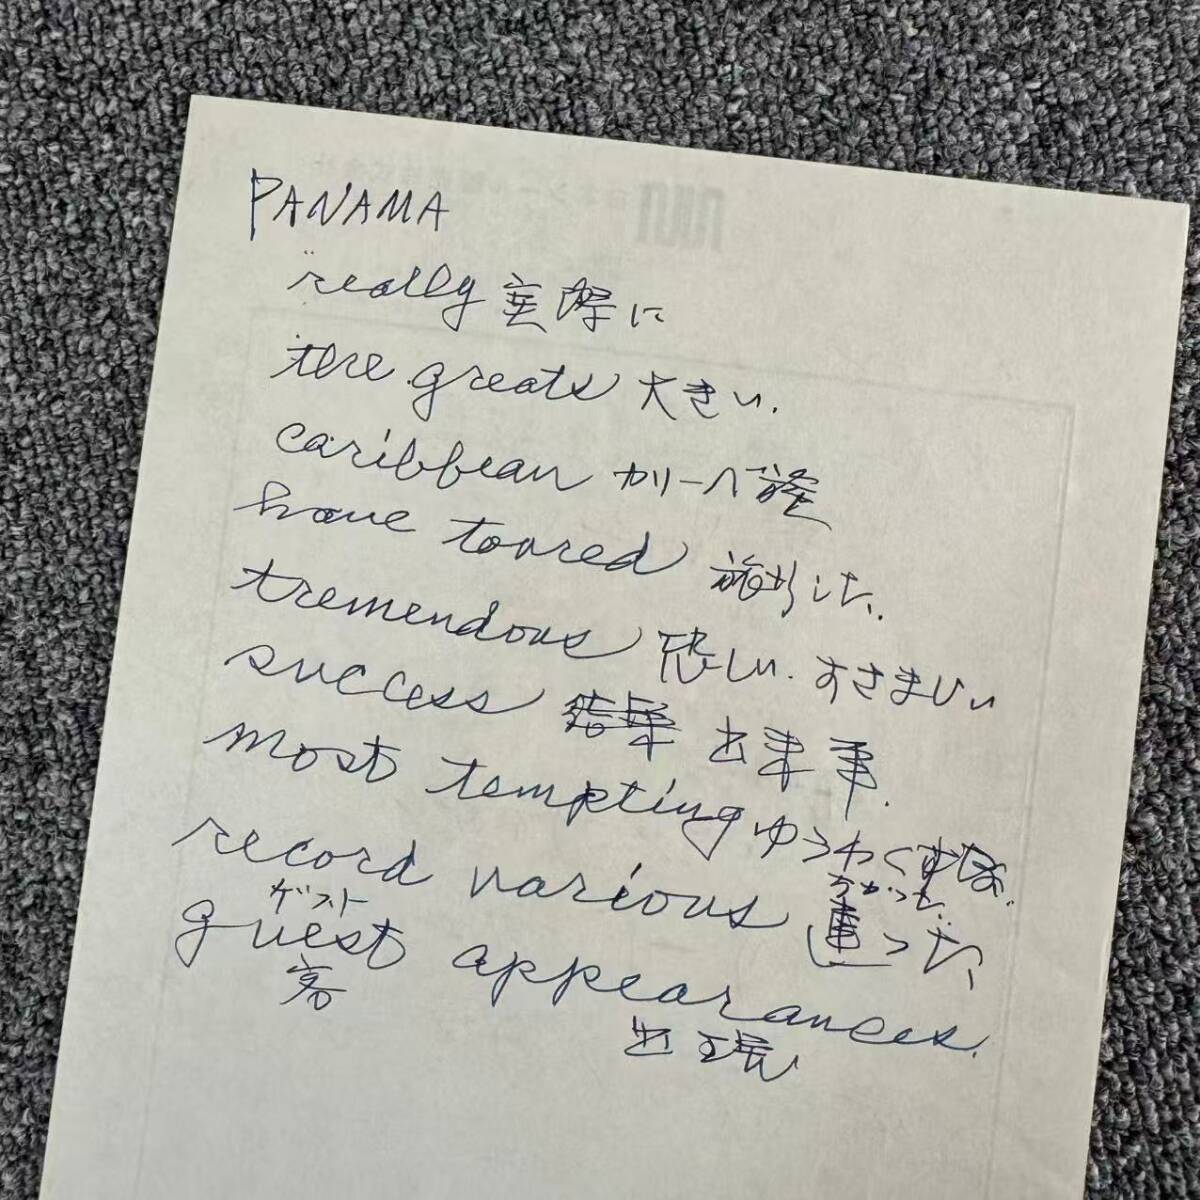 PANAMA
really 実際に
the greats 大きい.
caribbean カリーベ
have toured 旅行した.
tremendous 恐しい. すさまじい
success 結果 出来事.
most tempting ゆうわくする
record various ちがった 違った
ゲスト
guest appearances.
客
出現